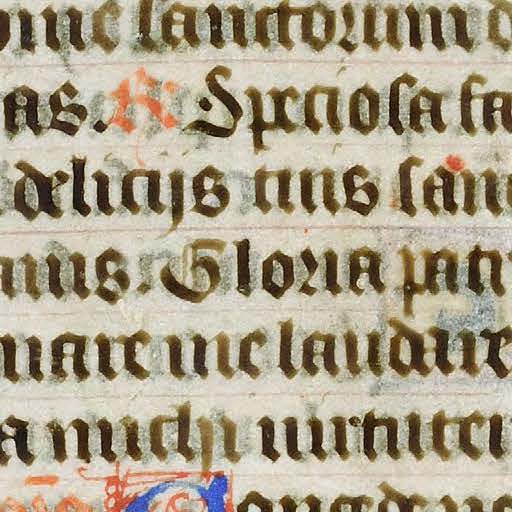 sanctorum
as. R. Speciosa fa
delicijs tuis san
Gloria patri
nare me laudare
a michi uirtutem